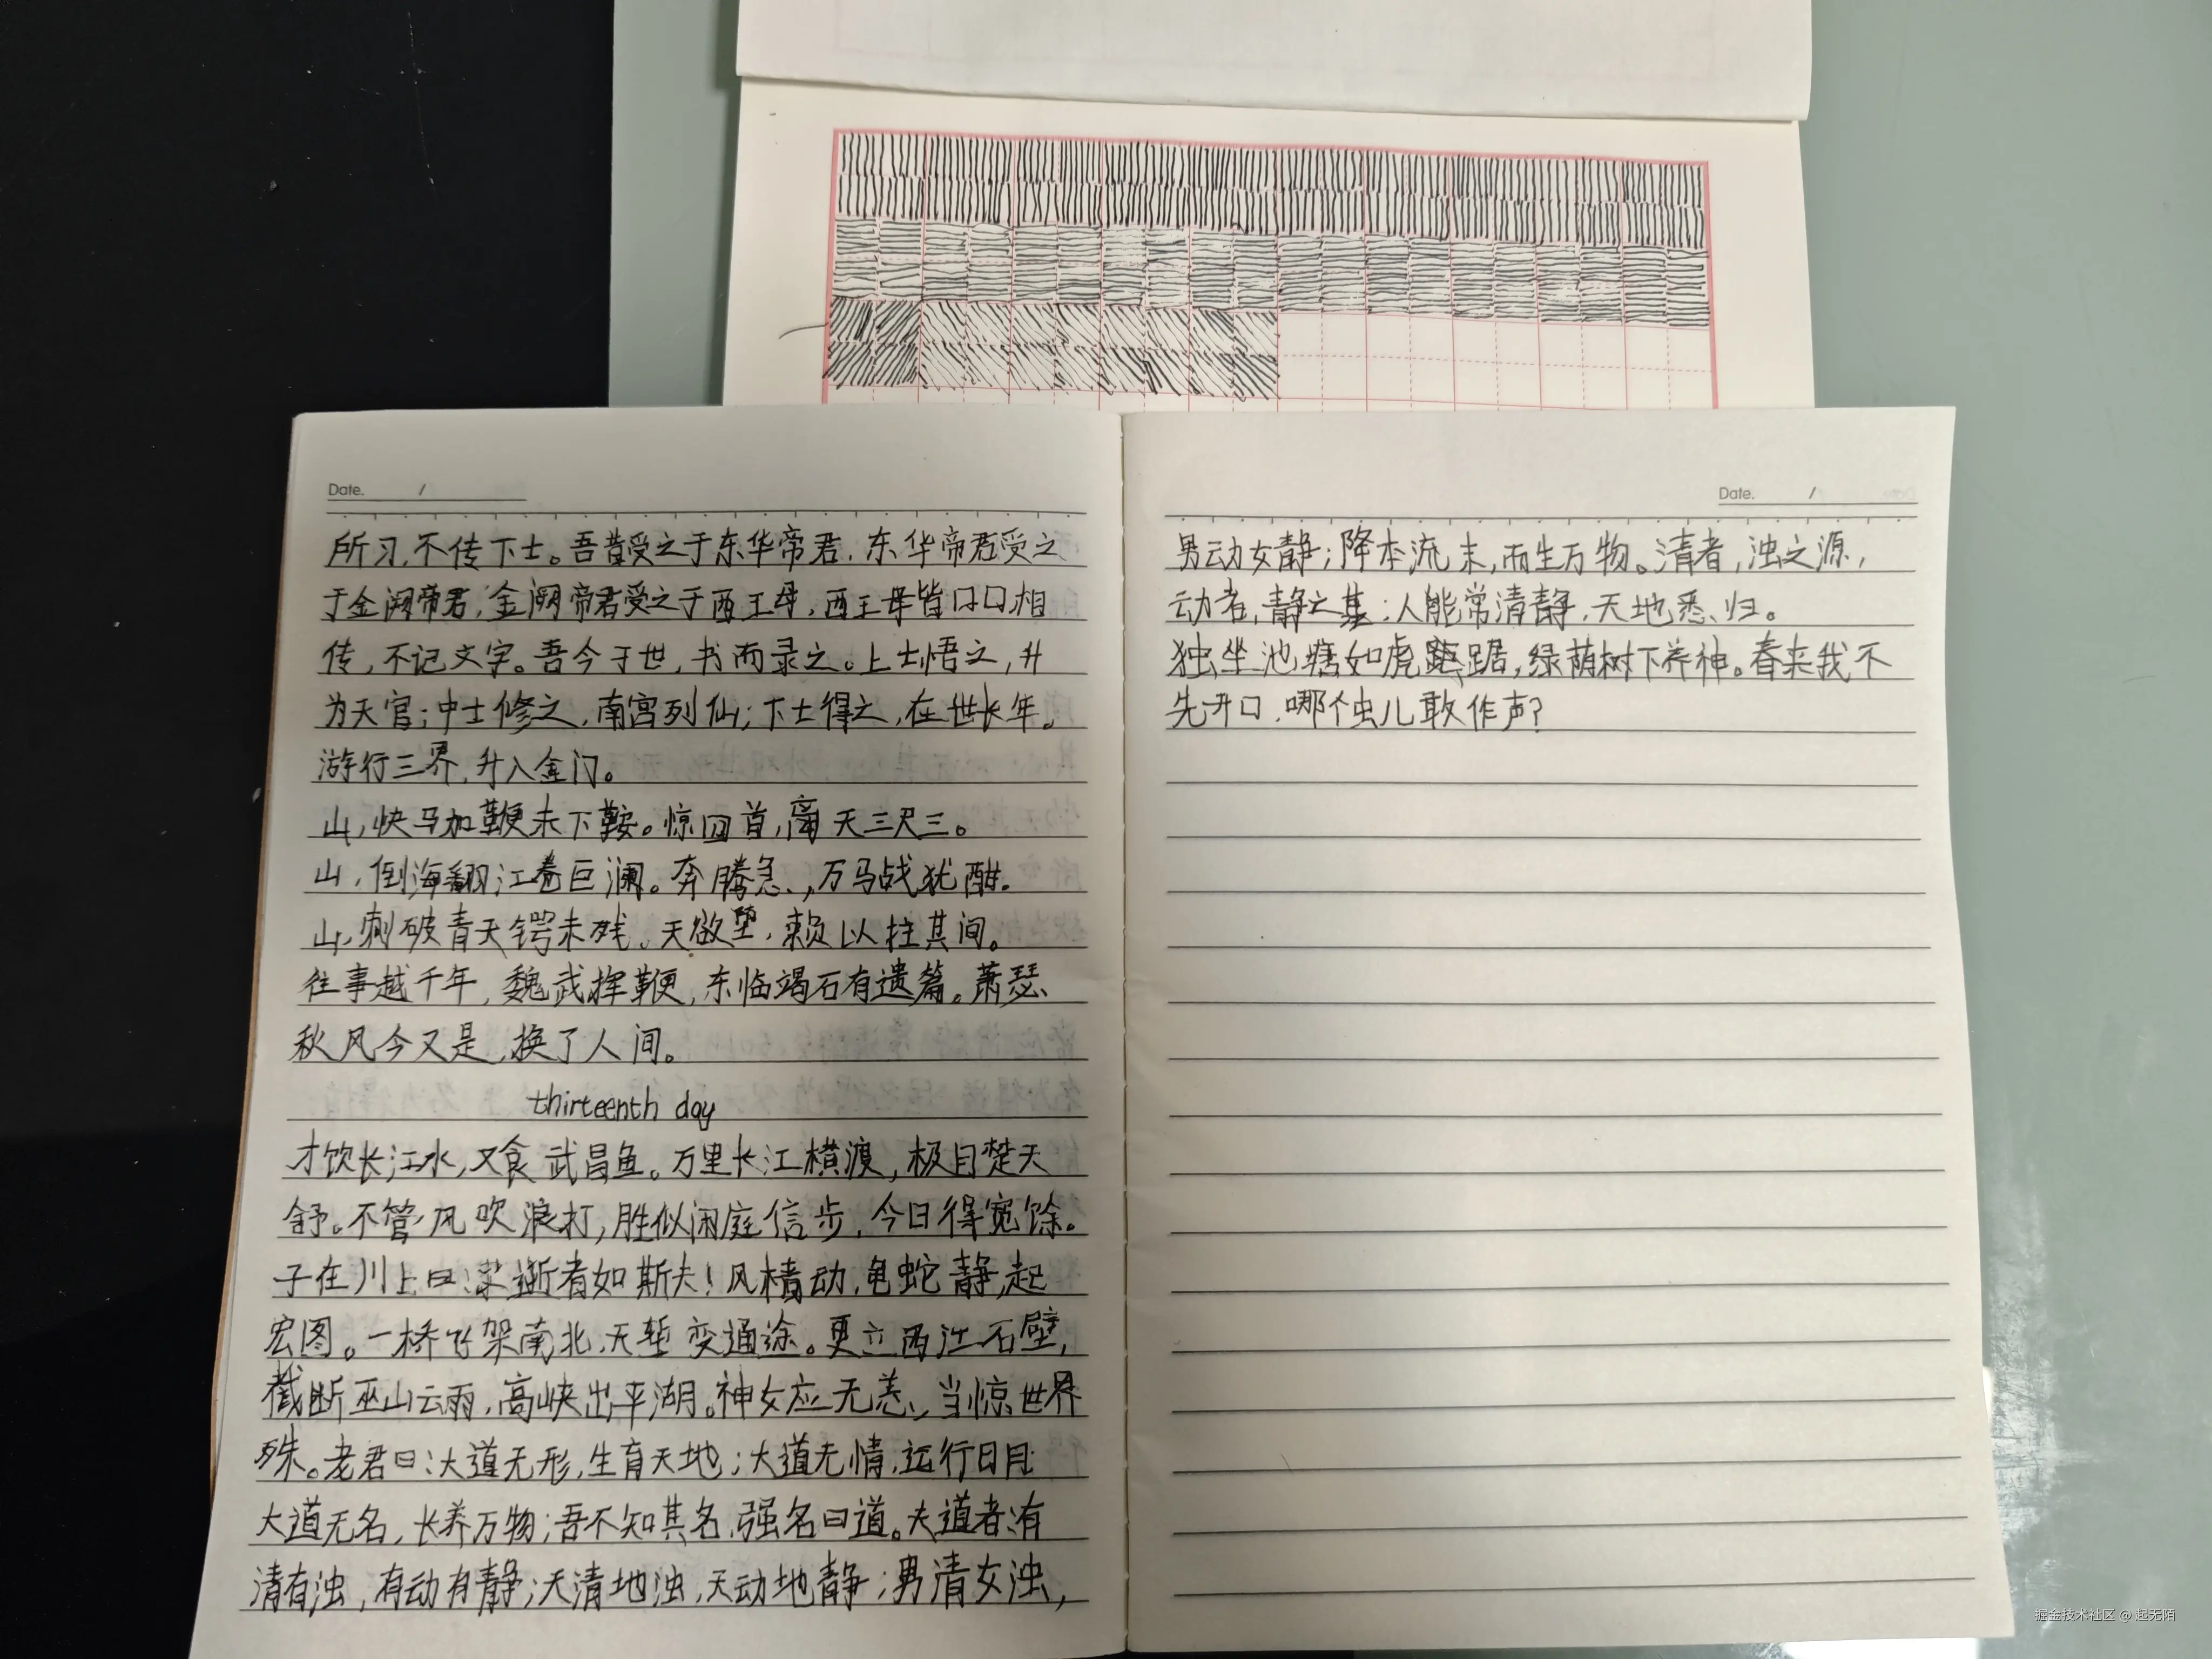 Date. /
所习,不传下士。吾昔受之于东华帝君,东华帝君受之
于金阙帝君,金阙帝君受之于西王母,西王母皆口口相
传,不记文字。吾今于世,书而录之。上士悟之,升
为天官;中士修之,南宫列仙;下士得之,在世长年。
游行三界,升入金门。
山,快马加鞭未下鞍。惊回首,离天三尺三。
山,倒海翻江卷巨澜。奔腾急,万马战犹酣。
山,刺破青天锷未残。天欲堕,赖以拄其间。
往事越千年,魏武挥鞭,东临竭石有遗篇。萧瑟
秋风今又是,换了人间。
thirteenth day
才饮长江水,又食武昌鱼。万里长江横渡,极目楚天
舒。不管风吹浪打,胜似闲庭信步,今日得宽馀。
子在川上曰:逝者如斯夫!风樯动,龟蛇静,起
宏图。一桥飞架南北,天堑变通途。更立西江石壁,
截断巫山云雨,高峡出平湖。神女应无恙,当惊世界
殊。老君曰:大道无形,生育天地;大道无情,运行日月
大道无名,长养万物;吾不知其名,强名曰道。夫道者:有
清有浊,有动有静;天清地浊,天动地静;男清女浊,
Date. /
男动女静;降本流末,而生万物。清者,浊之源,
动者,静之基;人能常清静,天地悉归。
独坐池塘如虎踞,绿荫树下养神。春来我不
先开口,哪个虫儿敢作声?
掘金技术社区 @ 起无陌